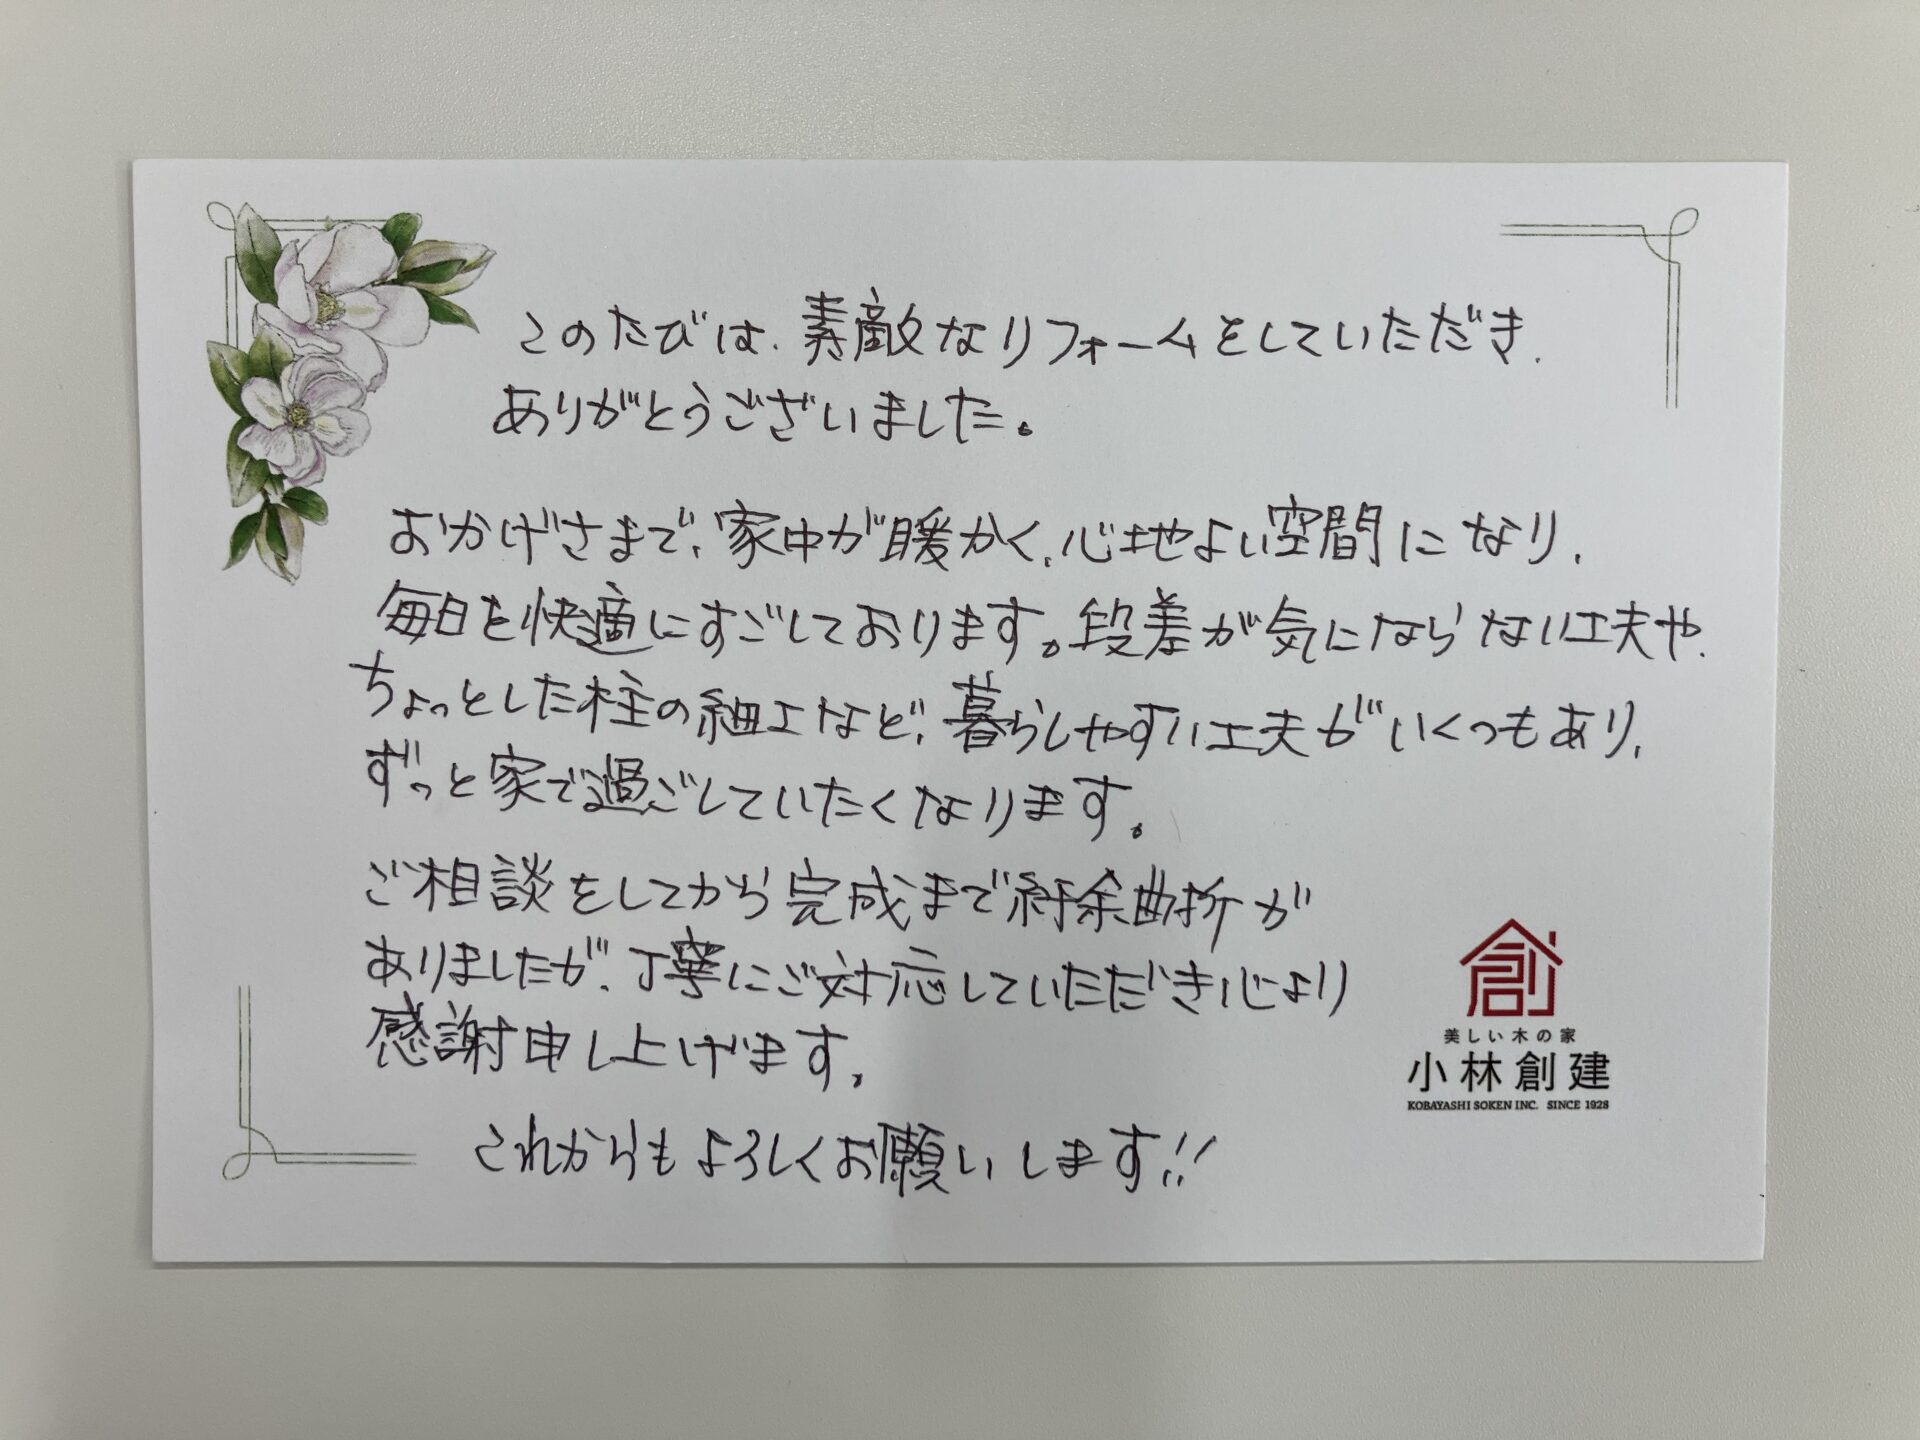 このたびは、素敵なリフォームをしていただき、
ありがとうございました。
おかげさまで、家中が暖かく、心地よい空間になり、
毎日を快適にすごしております。段差が気にならない工夫や、
ちょっとした柱の細工など、暮らしやすい工夫がいくつもあり、
ずっと家で過ごしていたくなります。
ご相談をしてから完成まで紆余曲折が
ありましたが、丁寧にご対応していただき心より
感謝申し上げます。
これからもよろしくお願いします!!
創
美しい木の家
小林創建
KOBAYASHI SOKEN INC. SINCE 1928